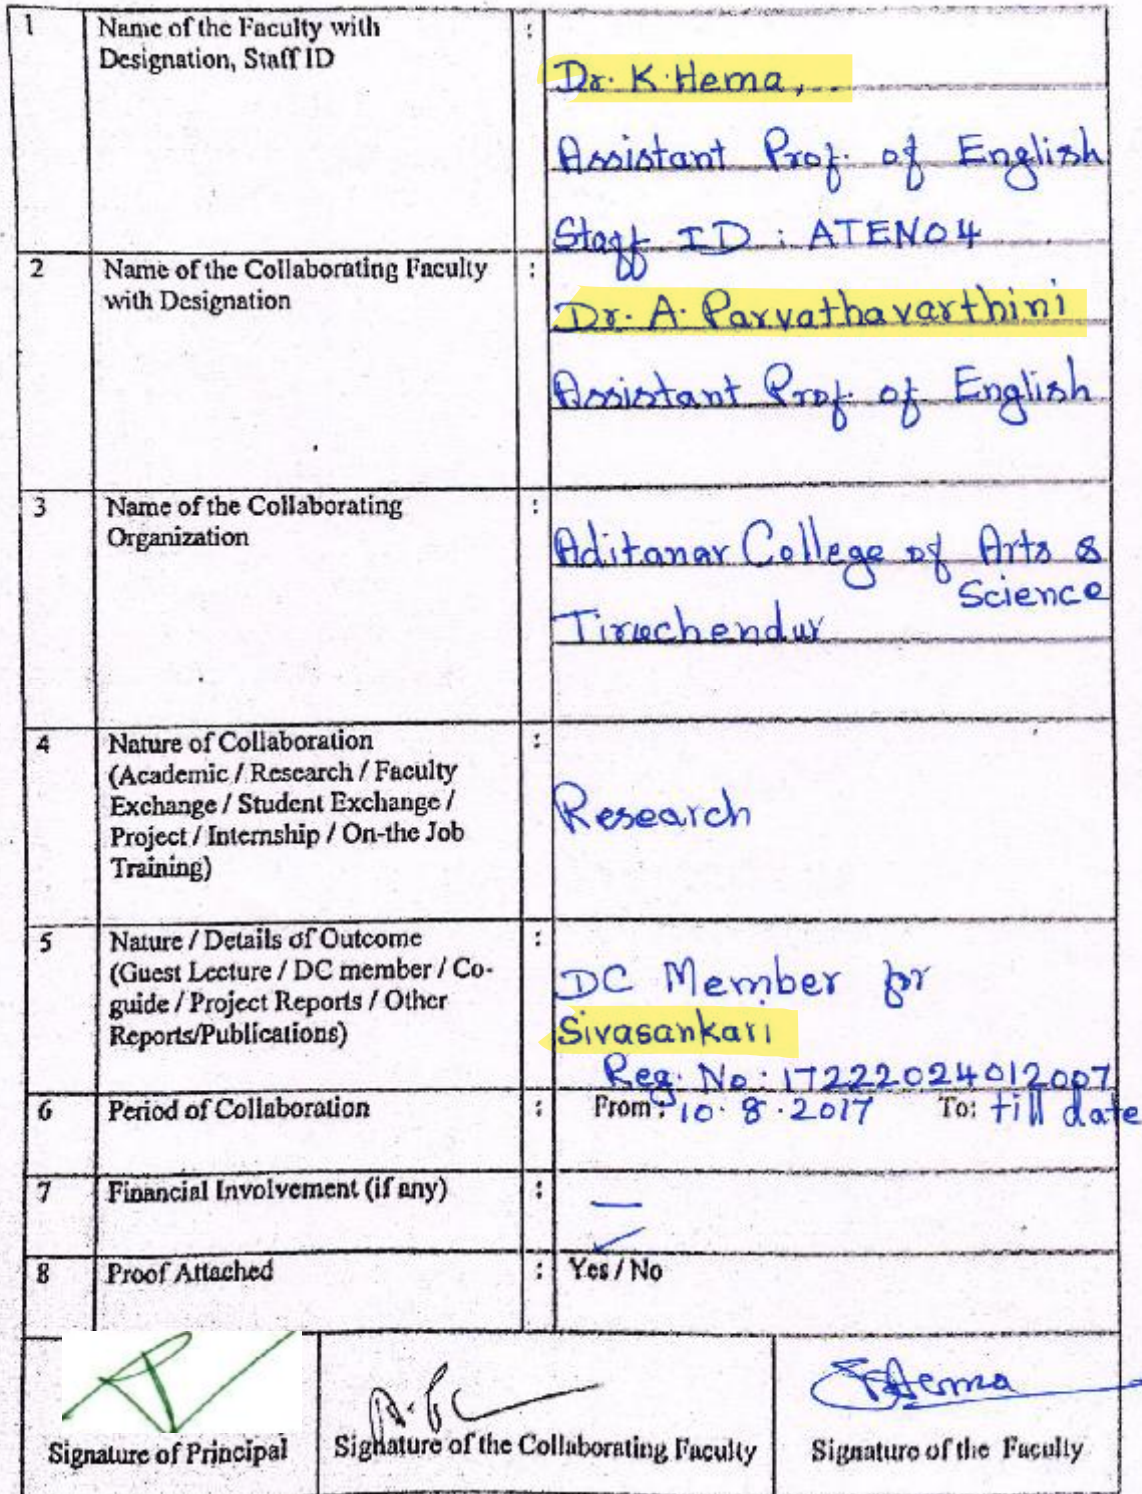 1 Name of the Faculty with :
Designation, Staff ID
Dr. K. Hema,
Assistant Prof. of English
Staff ID : ATEN04
2 Name of the Collaborating Faculty :
with Designation
Dr. A. Parvathavarthini
Assistant Prof. of English
3 Name of the Collaborating :
Organization
Aditanar College of Arts &
Science
Tiruchendur
4 Nature of Collaboration :
(Academic / Research / Faculty
Exchange / Student Exchange /
Project / Internship / On-the Job
Training)
Research
5 Nature / Details of Outcome :
(Guest Lecture / DC member / Co-
guide / Project Reports / Other
Reports/Publications)
DC Member for
Sivasankari
Reg. No : 17222024012007
6 Period of Collaboration : From : 10.8.2017 To: till date
7 Financial Involvement (if any) : —
8 Proof Attached : Yes / No
Hema
Signature of Principal Signature of the Collaborating Faculty Signature of the Faculty